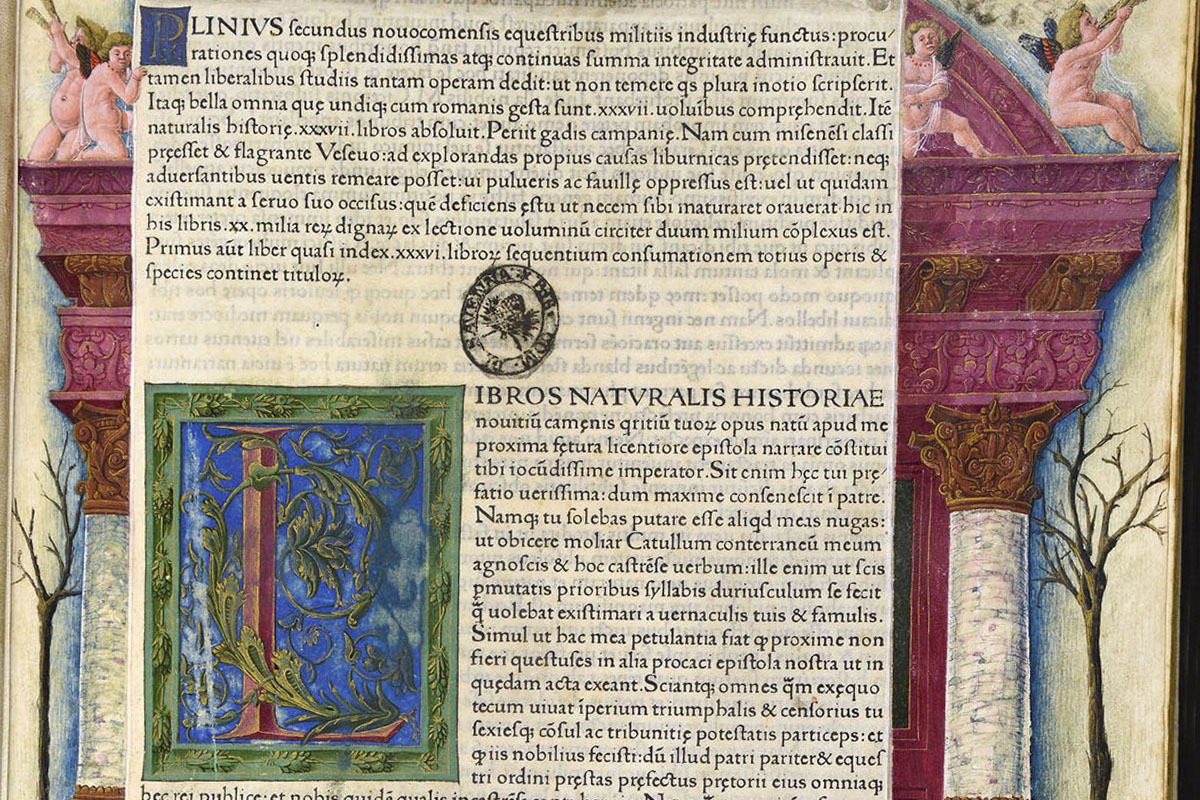 PLINIVS secundus nouocomensis equestribus militiis industrię functus: procu/
rationes quoq; splendidissimas atq; continuas summa integritate administrauit. Et
tamen liberalibus studiis tantam operam dedit: ut non temere qs plura inotio scripserit.
Itaq; bella omnia quę undiq; cum romanis gesta sunt. xxxvii. uoluibus compręhendit. Itē
naturalis historię. xxxvii. libros absoluit. Periit gadis campanię. Nam cum misenēsi classi
pręesset & flagrante Veseuo: ad explorandas propius causas liburnicas prętendisset: neq;
aduersantibus uentis remeare posset: ui pulueris ac fauillę oppressus est: uel ut quidam
existimant a seruo suo occisus: quē deficiens ęstu ut necem sibi maturaret orauerat hic in
his libris. xx. milia reꝝ dignaꝝ ex lectione uoluminū circiter duum milium cōplexus est.
Primus aūt liber quasi index. xxxvi. libroꝝ sequentium consumationem totius operis &
species continet tituloꝝ.
LIBROS NATVRALIS HISTORIAE
nouitiū camęnis qritiū tuoꝝ opus natū apud me
proxima fętura licentiore epistola narrare cōstitui
tibi iocūdissime imperator. Sit enim hęc tui prę/
fatio uerissima: dum maxime consenescit ī patre.
Namq; tu solebas putare esse aliqd meas nugas:
ut obicere moliar Catullum conterraneū meum
agnoscis & hoc castrēse uerbum: ille enim ut scis
pmutatis prioribus syllabis duriusculum se fecit
q̄ uolebat existimari a uernaculis tuis & famulis.
Simul ut hac mea petulantia fiat qꝫ proxime non
fieri questuses in alia procaci epistola nostra ut in
quędam acta exeant. Sciantq; omnes q̄m exęquo
tecum uiuat īperium triumphalis & censorius tu
sexiesq; cōsul ac tribunitię potestatis particeps: et
qꝫ iis nobilius fecisti: dū illud patri pariter & eques
tri ordini pręstas pręfectus prętorii eius omniaq;
hec rei publice: et nobis quidē qualis in castrēse